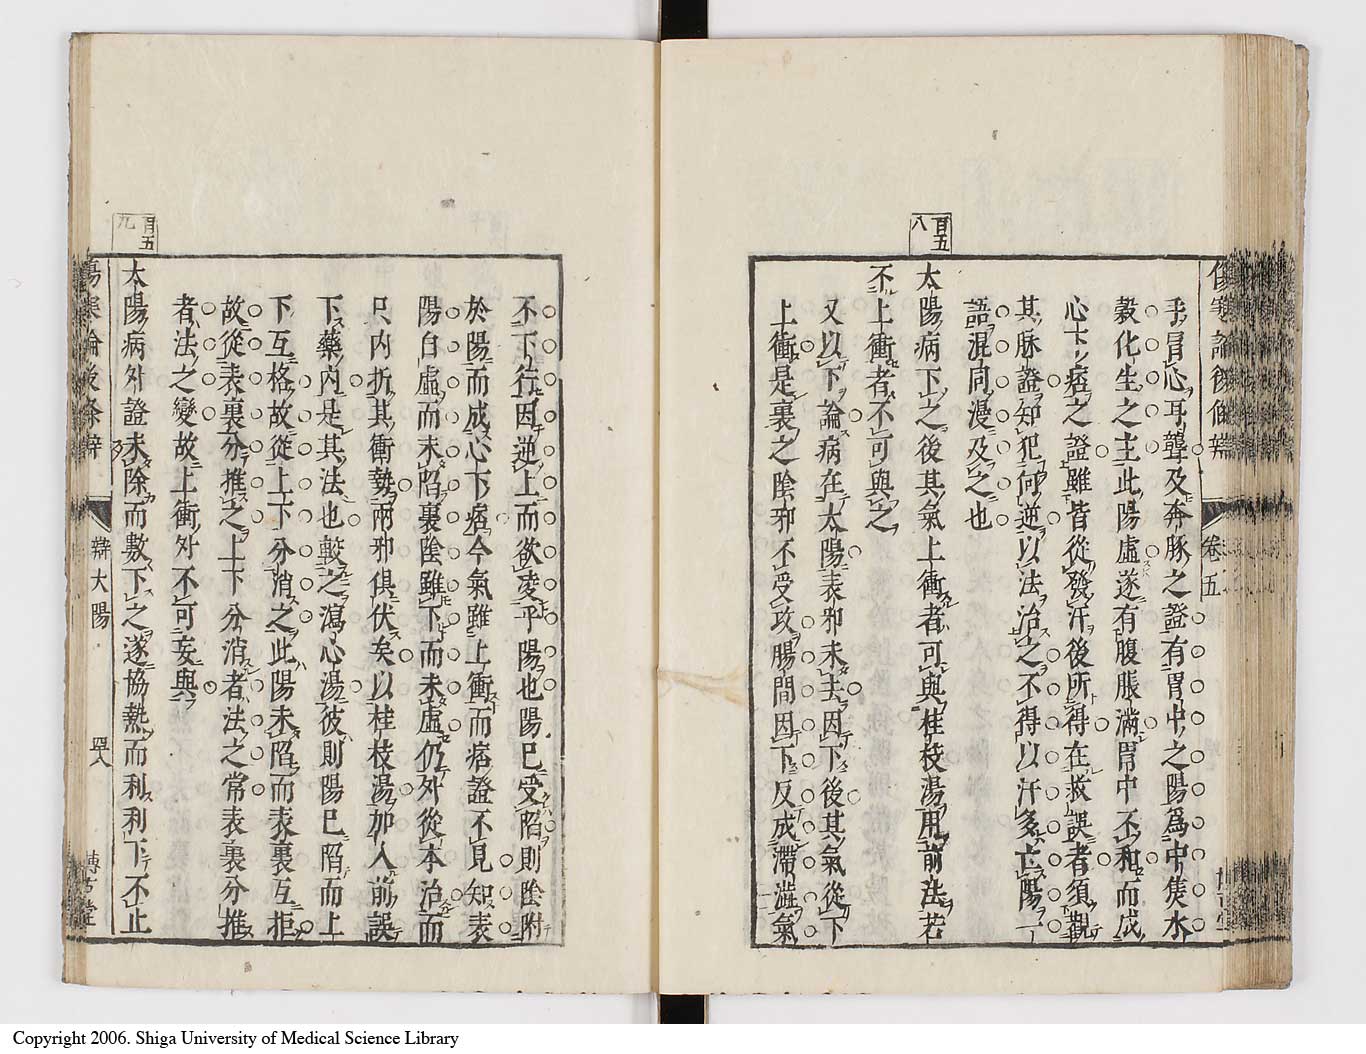 傷寒論後條辨
卷五
乎冒心耳聾及奔豚之證有胃中之陽為中焦水
穀化生之主此陽虛遂有腹脹滿胃中不和而成
心下痞之證雖皆從發汗後所得在救誤者須觀
其脉證知犯何逆以法治之不得以汗多亡陽一
語混同漫及之也
百五
八
太陽病下之後其氣上衝者可與桂枝湯用前法若
不上衝者不可與之
又以下論病在太陽表邪未去因下後其氣從下
上衝是裏之陰邪不受攻腸間因下反成滯澁氣
不下行因逆上而欲凌乎陽也陽已受陷則陰附
於陽而成心下痞今氣雖上衝而痞證不見知表
陽自虛而未陷裏陰雖下而未虛仍外從本治而
只內折其衝勢兩邪俱伏矣以桂枝湯加入前誤
下藥內是其法也較之瀉心湯彼則陽已陷而上
下互格故從上下分消之此陽未陷而表裏互拒
故從表裏分推之上下分消者法之常表裏分推
者法之變故上衝外不可妄與
百五
九
太陽病外證未除而數下之遂協熱而利利下不止
傷寒論後條辨
辯太陽
四八
博古堂
Copyright 2006. Shiga University of Medical Science Library